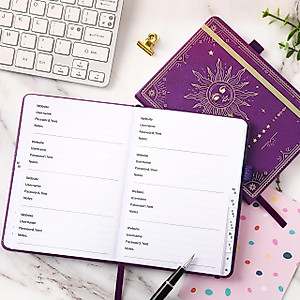 Website
Username
Password /hint
Notes
Website
Username
Password /hint
Notes
Website
Username
Password /hint
Notes
Website
Username
Password /hint
Notes
Website
Username
Password /hint
Notes
Website
Username
Password /hint
Notes
Website
Username
Password /hint
Notes
Website
Username
Password /hint
Notes